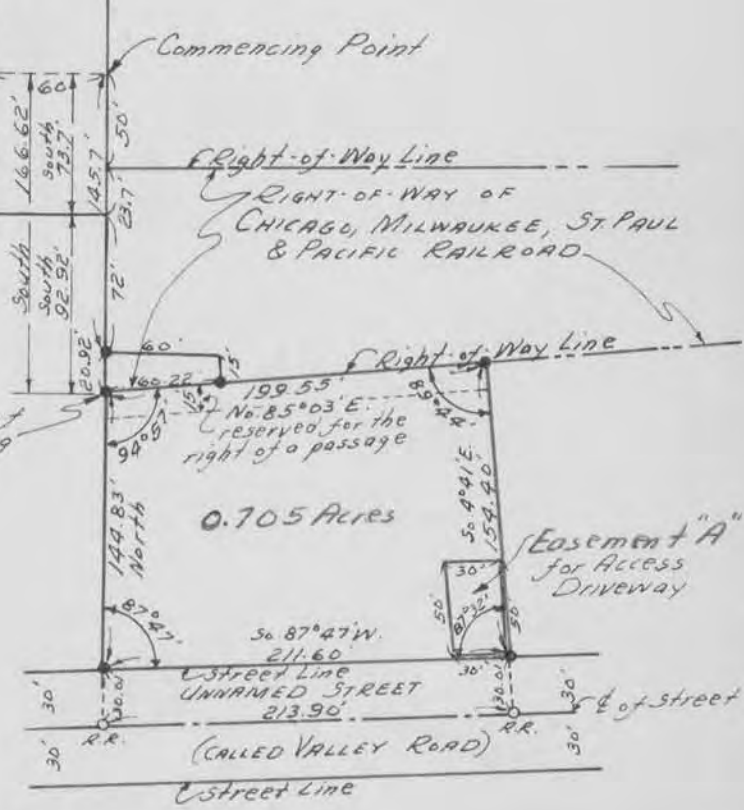 Commencing Point
60'
166.62'
South
73.7'
145.7'
50'
23.7'
Right-of-Way Line
RIGHT-OF-WAY OF
CHICAGO, MILWAUKEE, ST. PAUL
& PACIFIC RAILROAD
South
South
92.92'
72'
20.92'
60'
15'
Right-of-Way Line
60.22'
199.55'
15'
No. 85°03'E.
reserved for the
right of a passage
94°57'
89°44'
144.83'
North
0.705 Acres
So. 4°41'E.
154.40'
Easement "A"
for Access
Driveway
30'
50'
87°32'
50'
87°47'
So. 87°47'W.
211.60'
30'
Street Line
UNNAMED STREET
30'
30.01'
213.90'
30.01'
30'
℄ of Street
R.R.
R.R.
30'
(CALLED VALLEY ROAD)
30'
Street Line